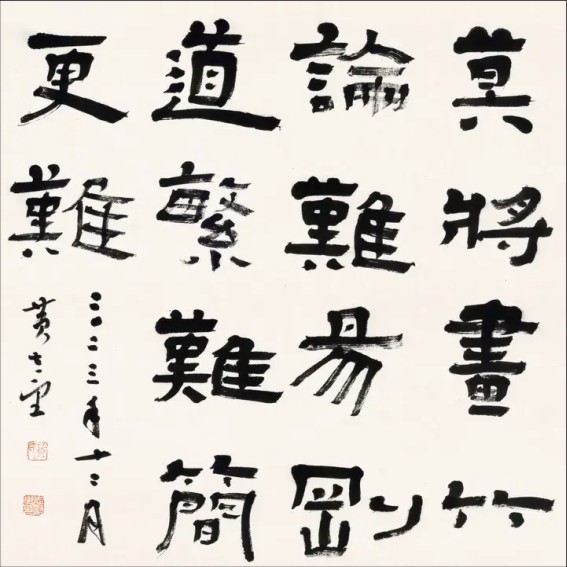 莫將畫竹
論難易剛
道繁難簡
更難
二〇二三年十二月